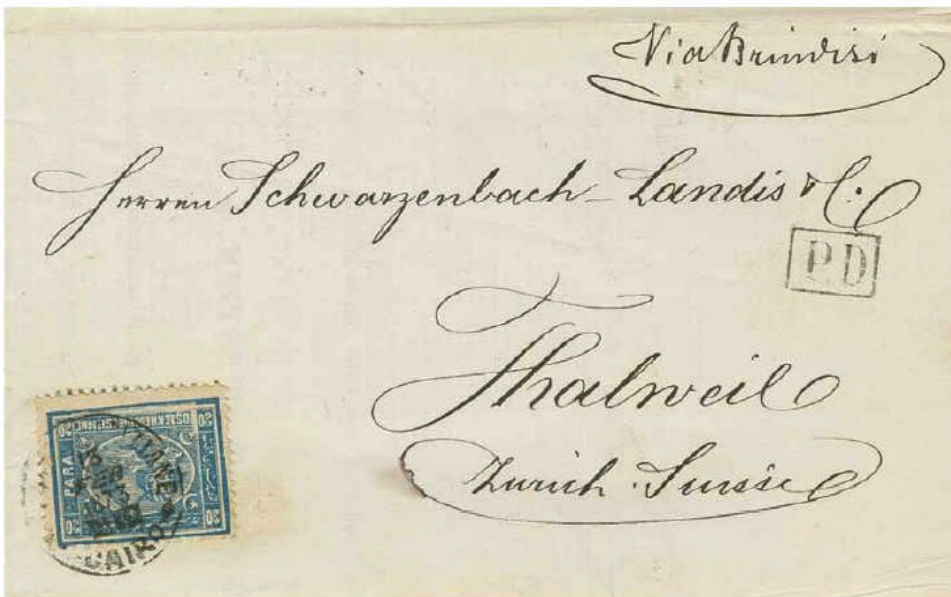 Via Brindisi
Herren Schwarzenbach-Landis & C.
P.D
Thalweil
Zürich. Suisse
20 PARA 20
20 20
CAIRO